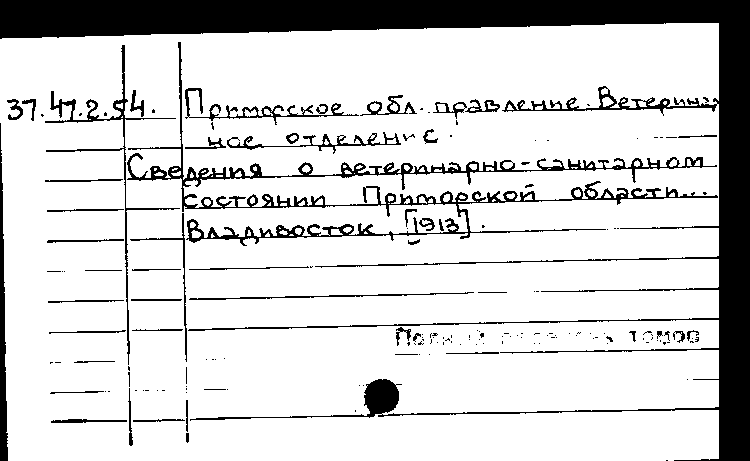 37.47.2.54. Приморское обл. правление. Ветеринар-
ное отделение.
Сведения о ветеринарно-санитарном
состоянии Приморской области...
Владивосток, [1913].
томов